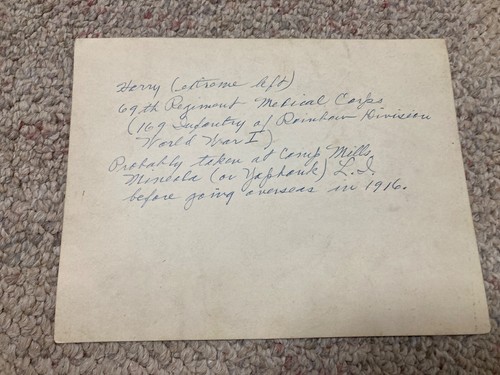 Harry (extreme left)
69th Regiment Medical Corps
(169 Infantry of Rainbow Division
World War I)
Probably taken at Camp Mills,
Mineola (or Yaphank) L.I.
before going overseas in 1916.